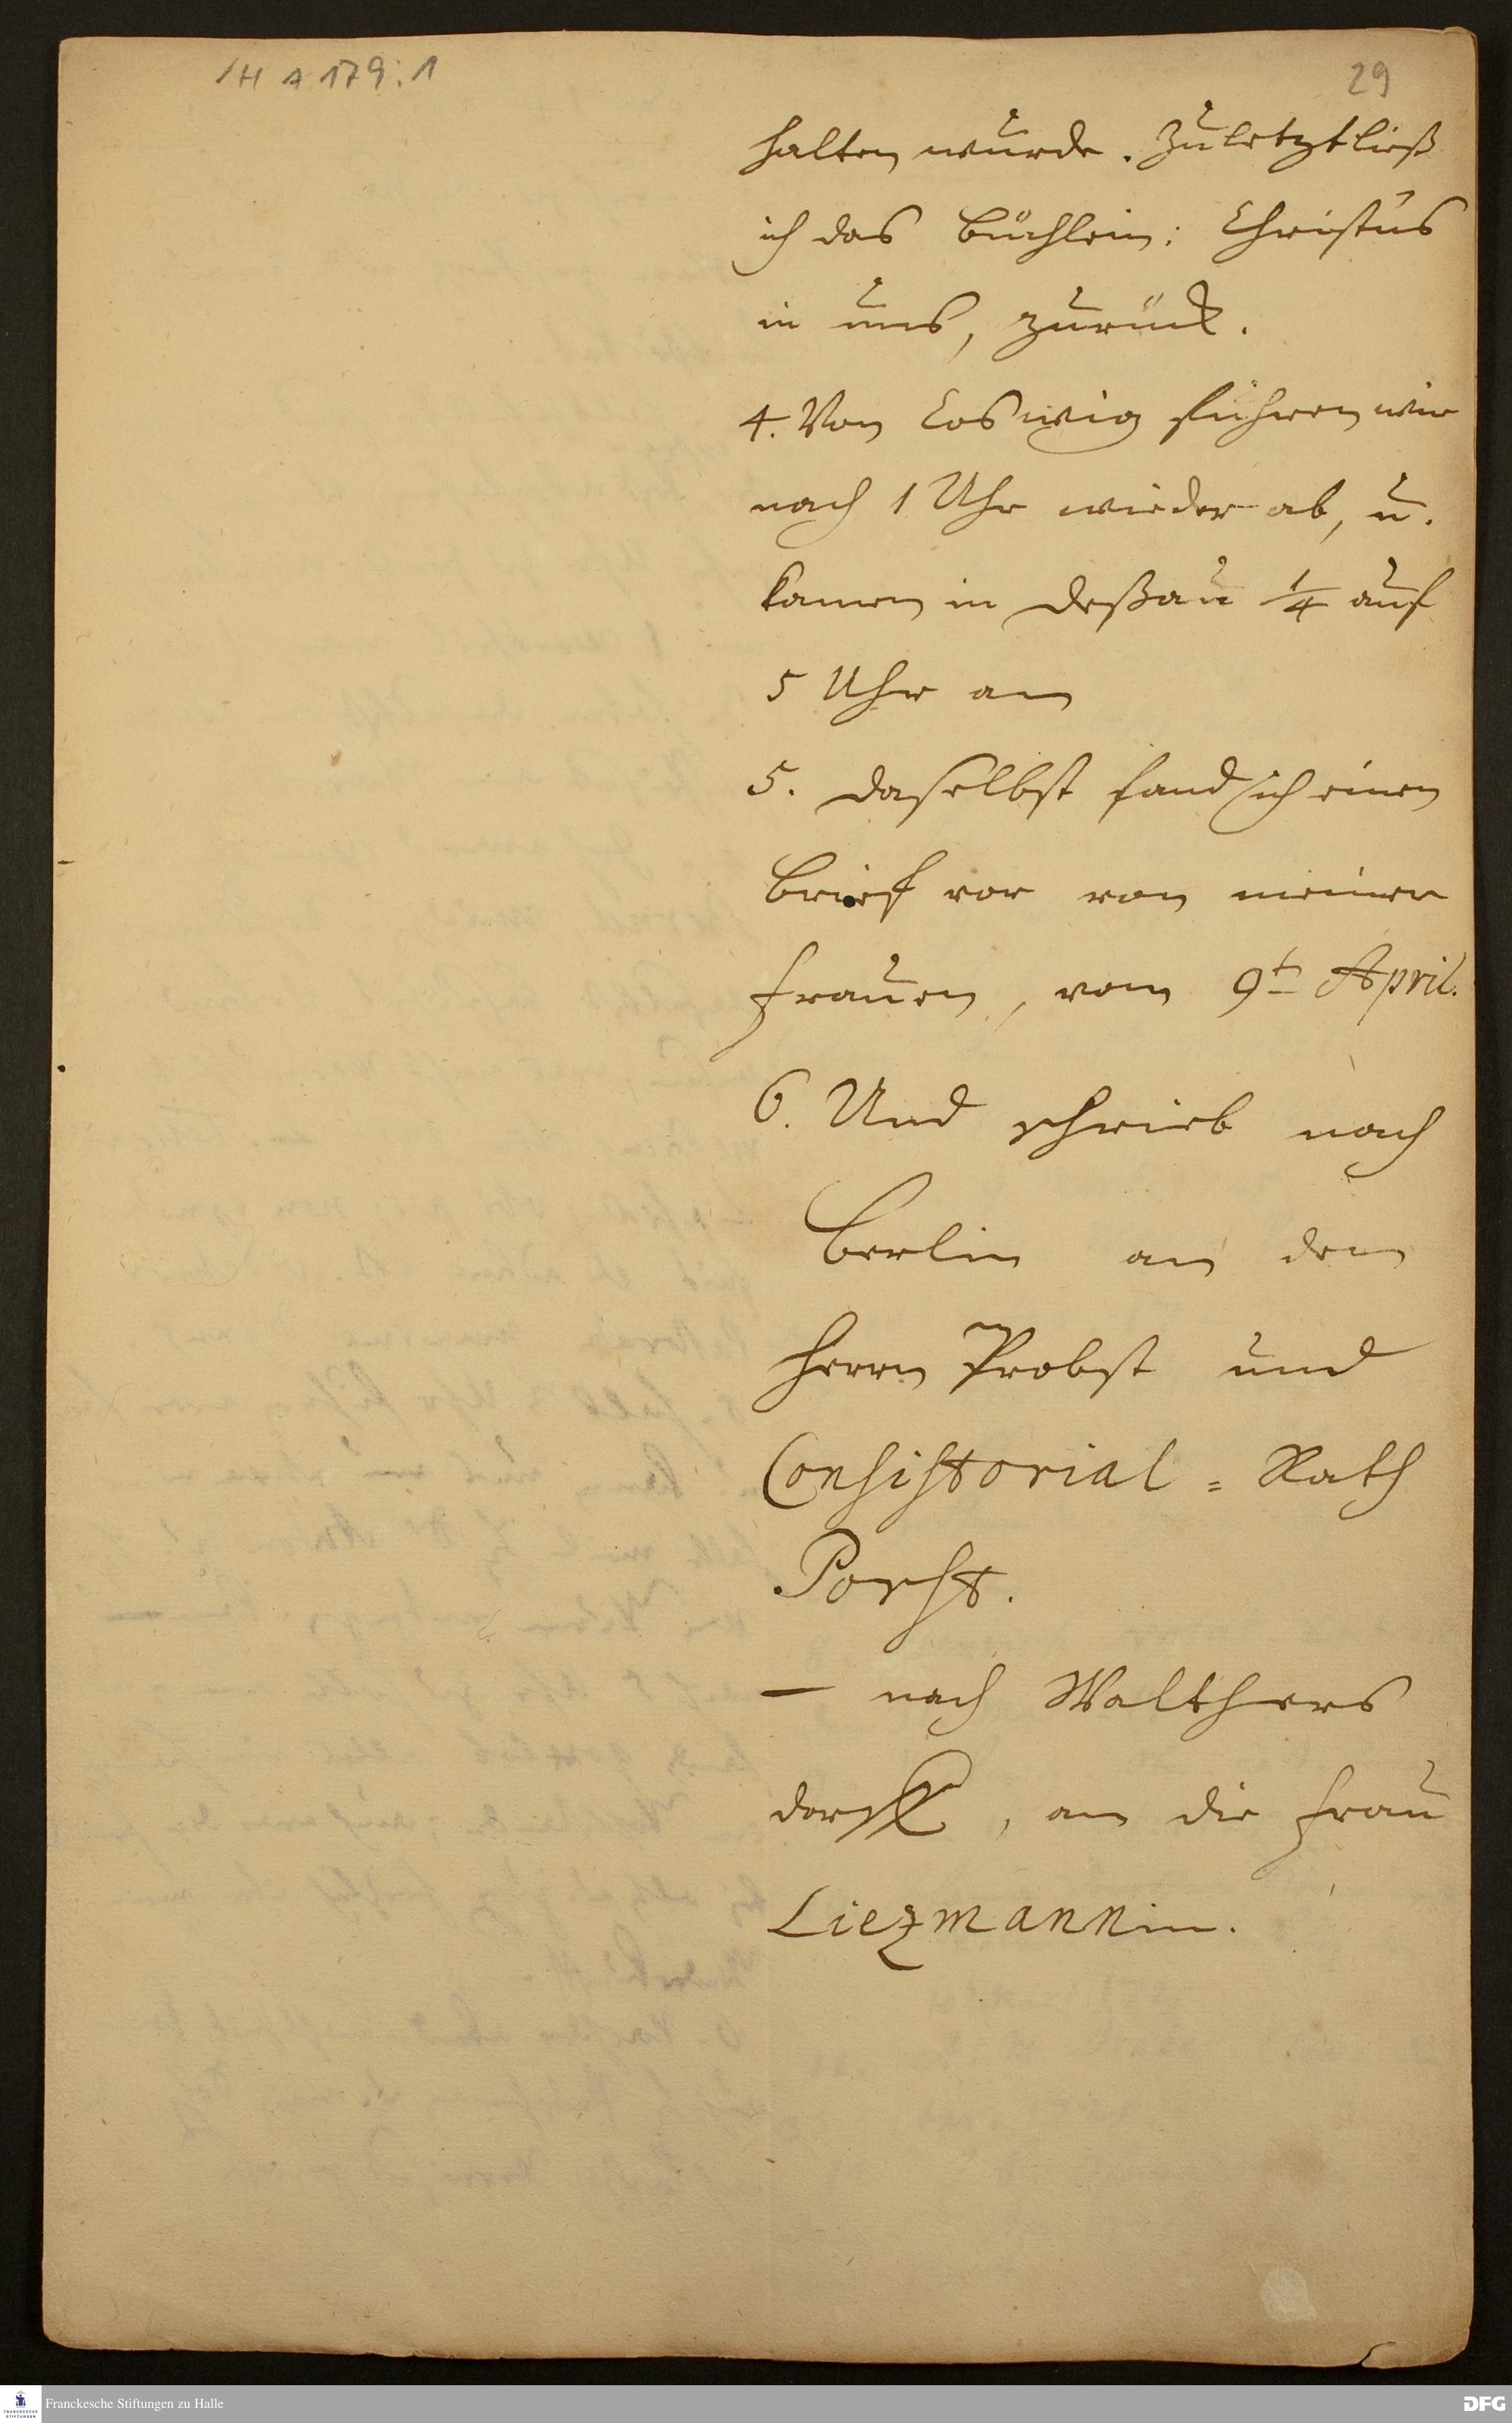 /H A 179:1
29
halten wurde. Zuletzt ließ
ich das Büchlein: Christus
in uns, zurück.
4. Von Coswig fuhren wir
nach 1 Uhr wieder ab, u.
kamen in Deßau 1/4 auf
5 Uhr an
5. Daselbst fand ich einen
Brief vor von meiner
Frauen, vom 9t April.
6. Und schrieb nach
Berlin an den
Herrn Probst und
Consistorial = Rath
Porst.
— nach Walthers
dorff, an die Frau
Liezmannin.
Franckesche Stiftungen zu Halle
FRANCKESCHE STIFTUNGEN
DFG